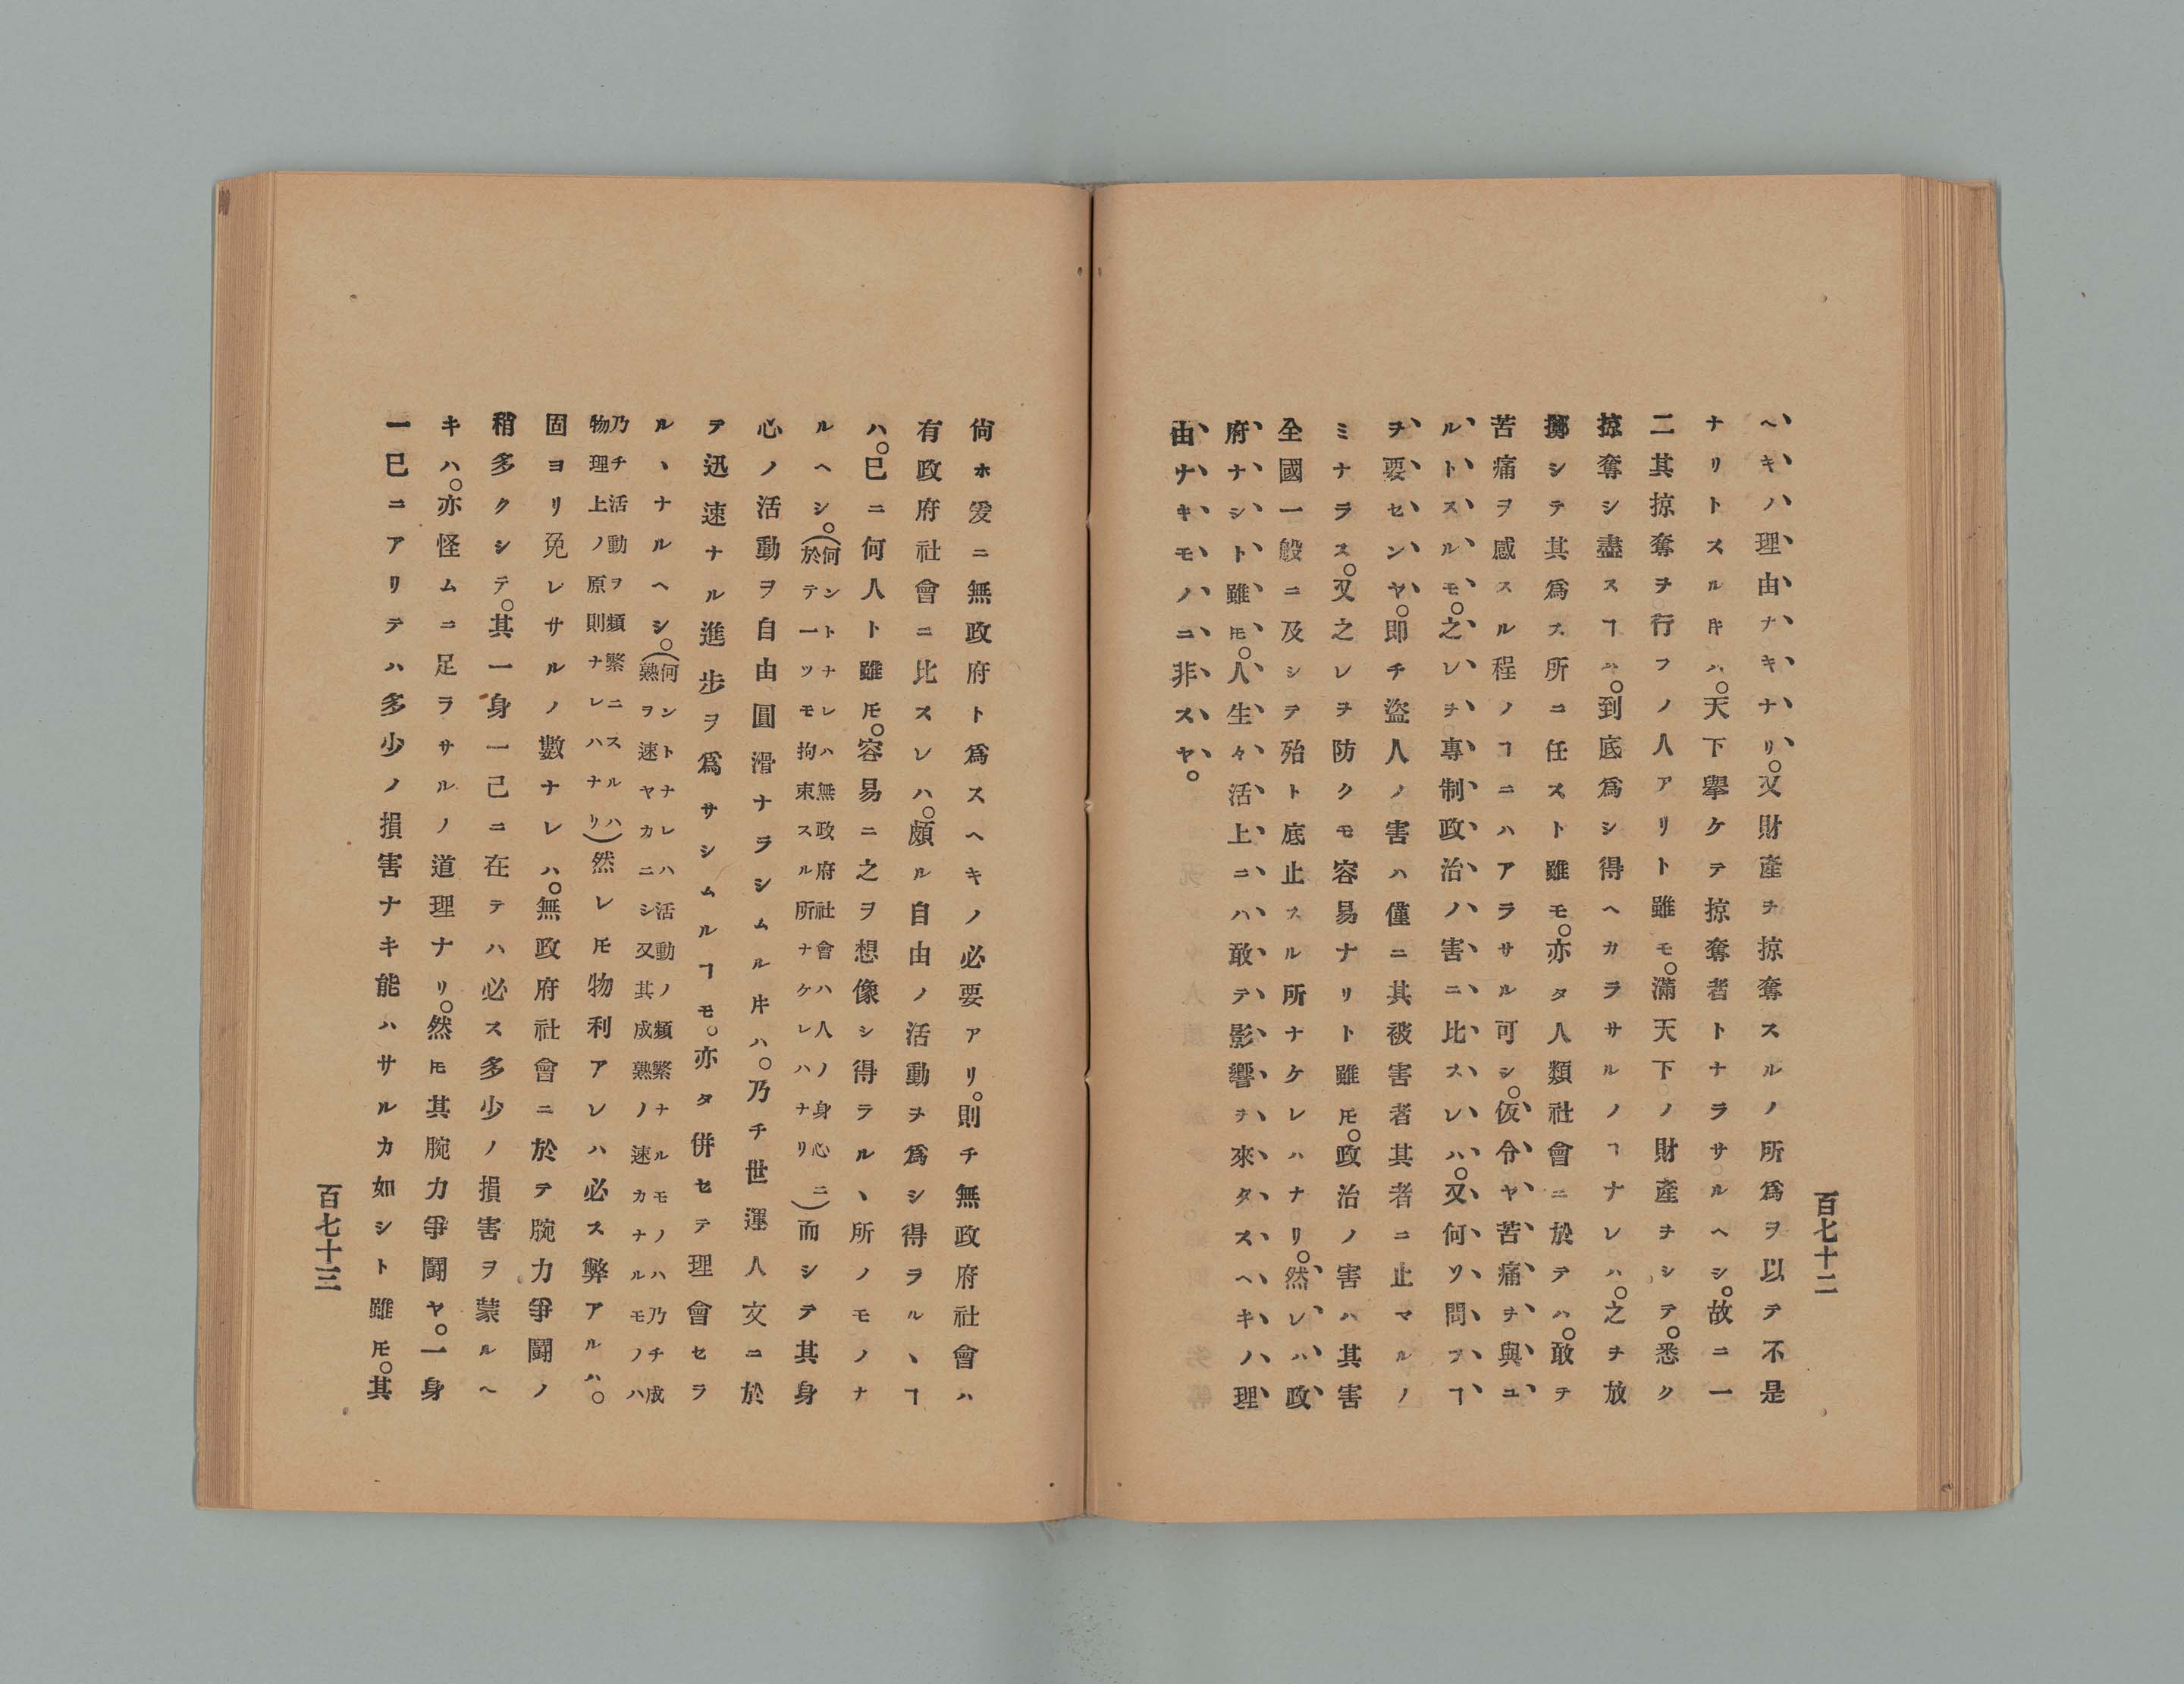 百七十二
ヘキノ理由ナキナリ。又財産ヲ掠奪スルノ所爲ヲ以テ不是
ナリトスル𪜈ハ。天下擧ケテ掠奪者トナラサルヘシ。故ニ一
二其掠奪ヲ行フノ人アリト雖モ。滿天下ノ財産ヲシテ。悉ク
掠奪シ盡スヿハ。到底爲シ得ヘカラサルノヿナレハ。之ヲ放
擲シテ其爲ス所ニ任スト雖モ。亦タ人類社會ニ於テハ。敢テ
苦痛ヲ感スル程ノヿニハアラサル可シ。仮令ヤ苦痛ヲ與ユ
ルトスルモ。之レヲ專制政治ノ害ニ比スレハ。又何ソ問フヿ
ヲ要センヤ。即チ盜人ノ害ハ僅ニ其被害者其者ニ止マルノ
ミナラス。又之レヲ防クモ容易ナリト雖𪜈。政治ノ害ハ其害
全國一般ニ及シテ殆ト底止スル所ナケレハナリ。然レハ政
府ナシト雖𪜈。人生々活上ニハ敢テ影響ヲ來タスヘキノ理
由ナキモノニ非スヤ。
尙ホ爰ニ無政府ト爲スヘキノ必要アリ。則チ無政府社會ハ
有政府社會ニ比スレハ。頗ル自由ノ活動ヲ爲シ得ラルヽヿ
ハ。已ニ何人ト雖𪜈。容易ニ之ヲ想像シ得ラルヽ所ノモノナ
ルヘシ。(何ントナレハ無政府社會ハ人ノ身心ニ於テ一ツモ拘束スル所ナケレハナリ)而シテ其身
心ノ活動ヲ自由圓滑ナラシムル𪜈ハ。乃チ世運人文ニ於
テ迅速ナル進步ヲ爲サシムルヿモ。亦タ併セテ理會セラ
ルヽナルヘシ。(何ントナレハ活動ノ頻繁ナルモノハ乃チ成熟ヲ速ヤカニシ又其成熟ノ速カナルモノハ
乃チ活動ヲ頻繁ニスルハ物理上ノ原則ナレハナリ)然レ𪜈物利アレハ必ス弊アルハ。
固ヨリ免レサルノ數ナレハ。無政府社會ニ於テ腕力爭鬪ノ
稍多クシテ。其一身一己ニ在テハ必ス多少ノ損害ヲ蒙ルヘ
キハ。亦怪ムニ足ラサルノ道理ナリ。然𪜈其腕力爭鬪ヤ。一身
一已ニアリテハ多少ノ損害ナキ能ハサルカ如シト雖𪜈。其
百七十三